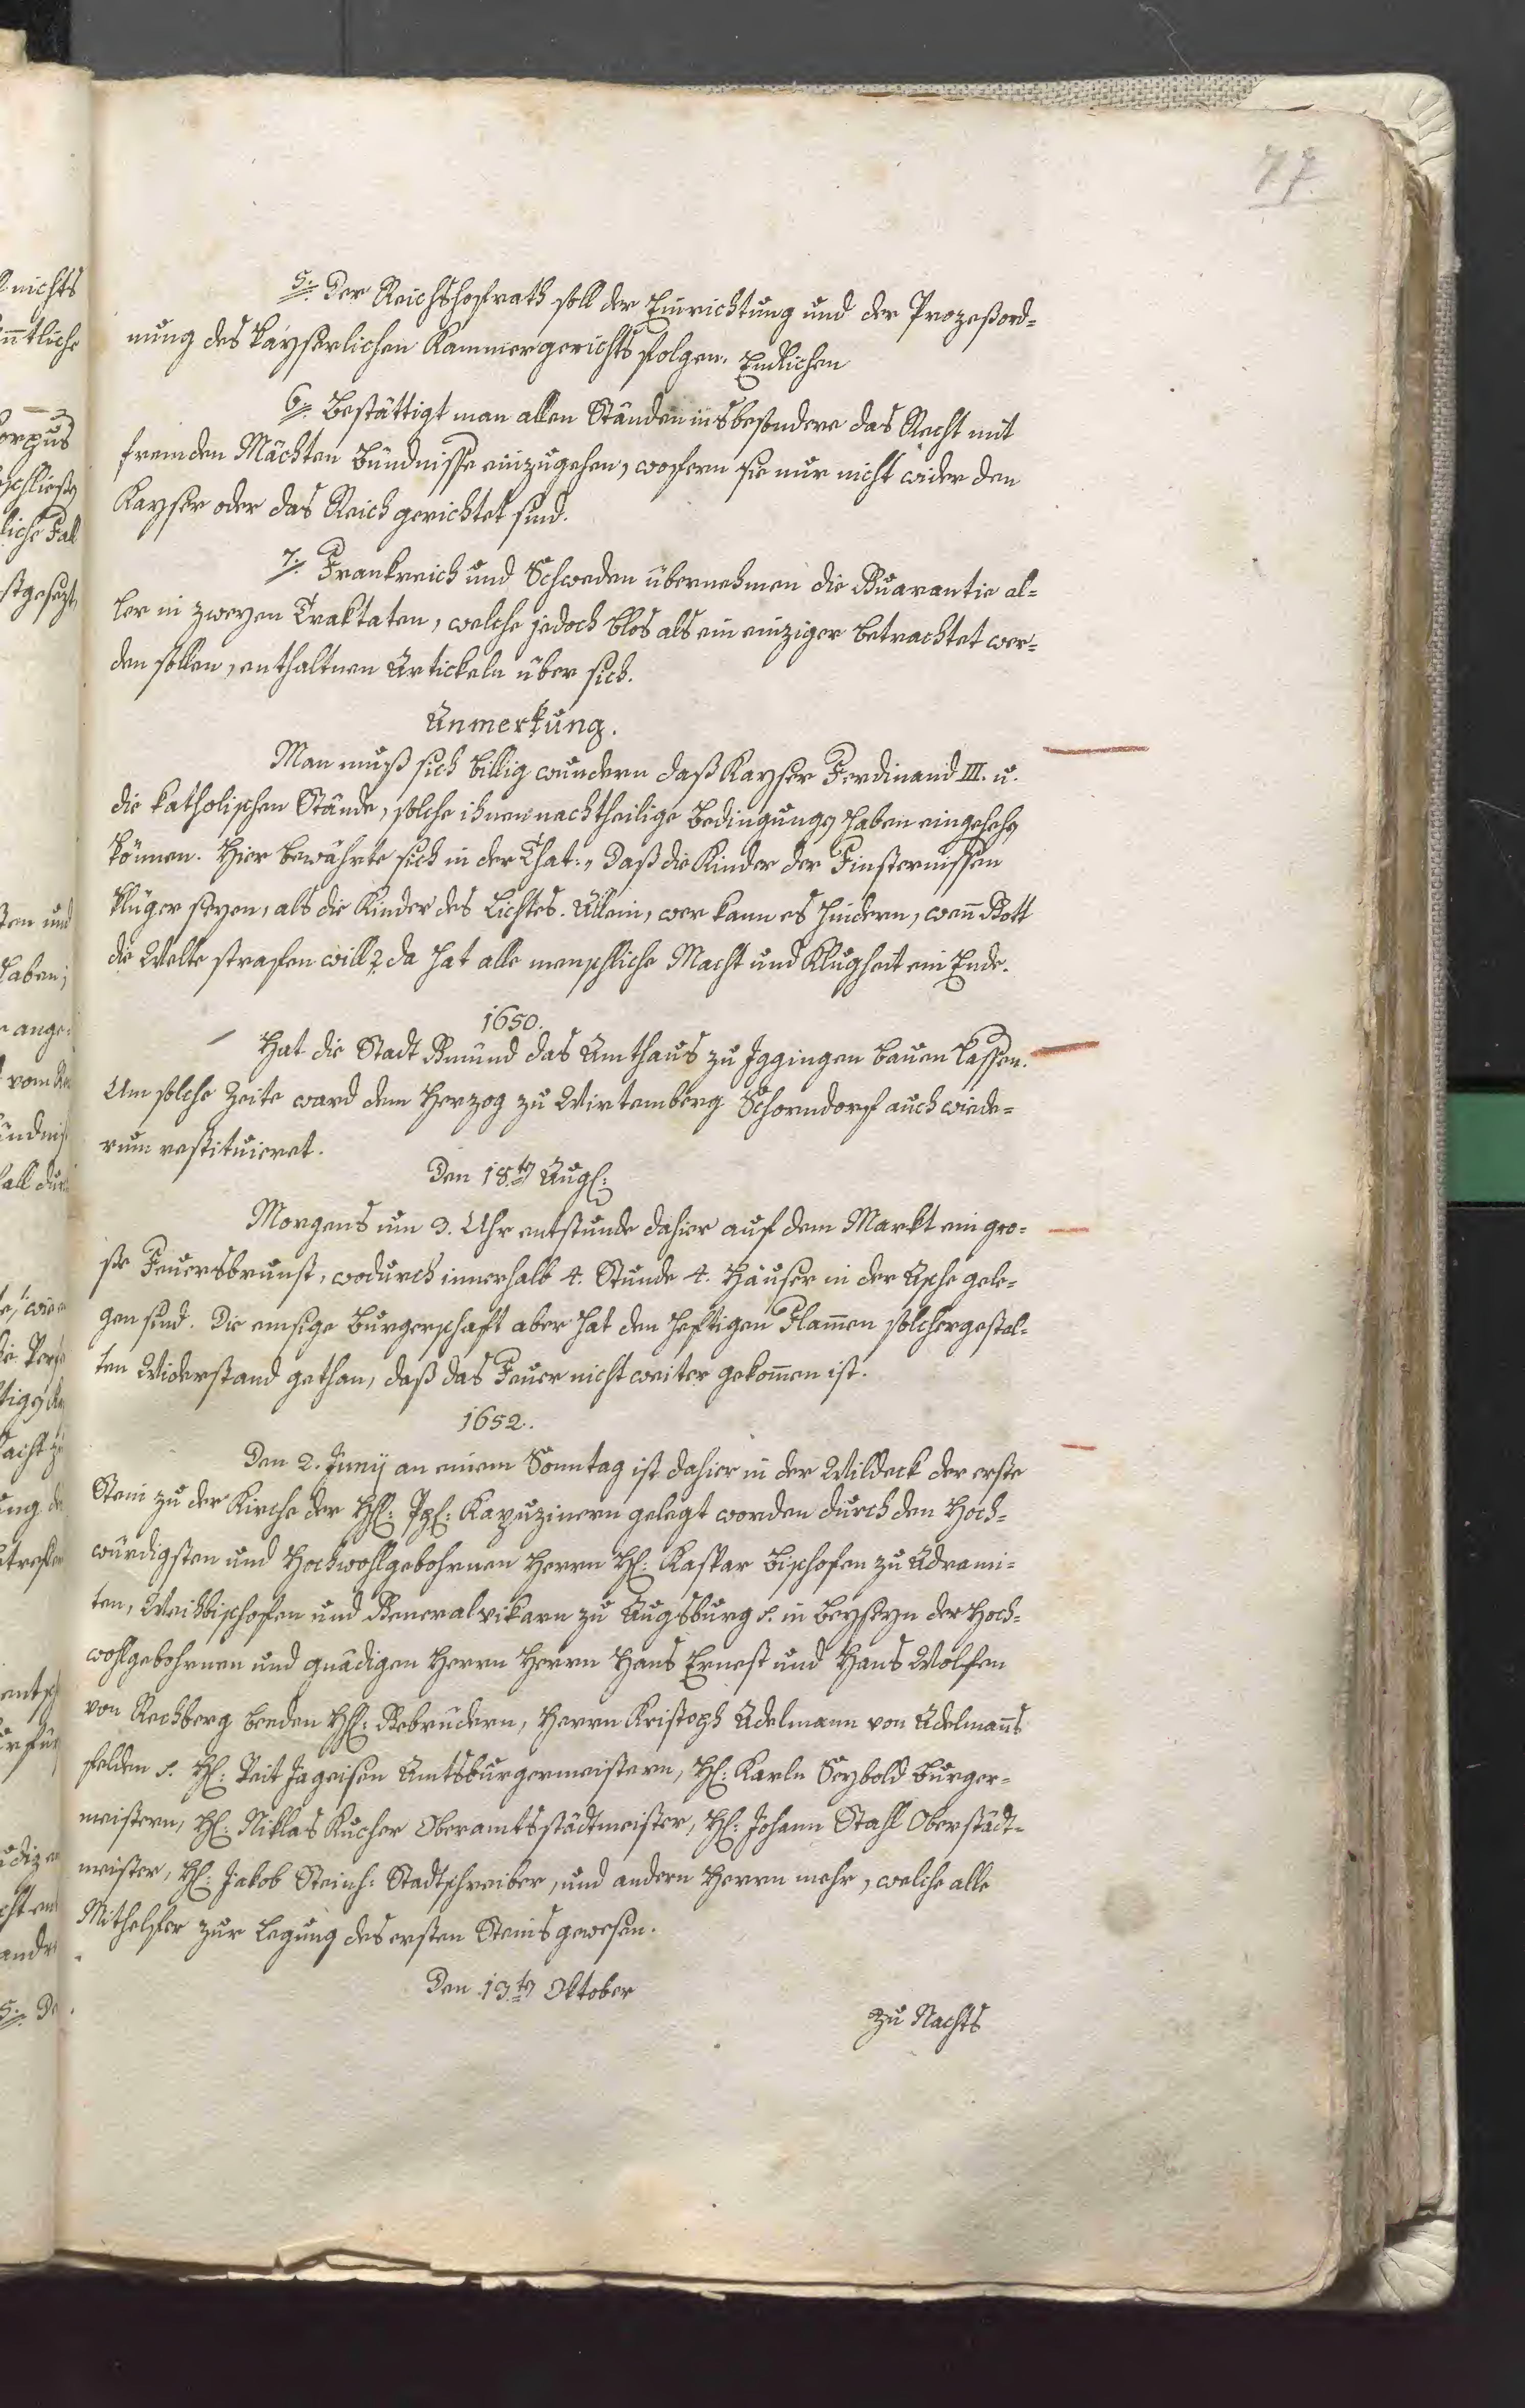 77.
5. Der Reichshofrath soll der Einrichtung und der Prozeßord=
nung des kayserlichen Kammergerichts folgen. Endlichen
6. Bestättigt man allen Ständen insbesondere das Recht mit
fremden Mächten Bündnisse einzugehen, wofern sie nur nicht wider den
Kayser oder das Reich gerichtet sind.
7. Frankreich und Schweden übernehmen die Guarantie al=
ler in zweyen Traktaten, welche jedoch blos als ein einziger betrachtet wer=
den sollen, enthaltnen Artickeln über sich.
Anmerkung.
Man muß sich billig wundern daß Kayser Ferdinand III. u.
die katholischen Stände, solche ihnen nachtheilige Bedingungen haben eingehehen
können. Hier bewährte sich in der That: „ Daß die Kinder der Finsternissen
klüger seyen, als die Kinder des Lichtes. Allein, wer kann es hindern, wen̄ Gott
die Welte strafen will? da hat alle menschliche Macht und Klugheit ein Ende.
1650.
Hat die Stadt Gmünd das Amthaus zu Iggingen bauen lassen.
Um solche Zeite ward dem Herzog zu Wirtemberg Schorndorf auch wiede=
rum restituieret.
Den 18.ten Aug:
Morgens um 3. Uhr entstunde dahier auf dem Markt ein gro=
ße Feuersbrunst, wodurch innerhalb 4. Stunde 4. Häuser in der Asche gele=
gen sind. Die emsige Burgerschaft aber hat den heftigen Flam̄en solchergestal=
ten Widerstand gethan, daß das Feuer nicht weiter gekom̄en ist.
1652.
Den 2. Junij an einem Sonntag ist dahier in der Wildeck der erste
Stein zu der Kirche der HH: PP: Kapuzinern gelegt worden durch den Hoch=
würdigsten und Hochwohlgebohrnen Herrn H: Kaspar Bischofen zu Adrami=
ten, Weihbischofen und Generalvikarn zu Augsburg s. in Beyseyn der Hoch=
wohlgebohrnen und gnädigen Herrn Herrn Hans Ernest und Hans Wolfen
von Rechberg beeden HH: Gebrüdern, Herrn Kristoph Adelmann von Adelman̄s
felden s. H: Veit Jageisen Amtsburgermeistern, H: Karln Seybold Burger=
meistern, H: Niklas Kucher Oberamtsstädtmeister, H: Johann Stahl Oberstädt=
meister, H: Jakob Steinh: Stadtschreiber, und andern Herrn mehr, welche alle
Mithelfer zur Legung des ersten Steins gewesen.
Den 13.ten Oktober
zu Nachts